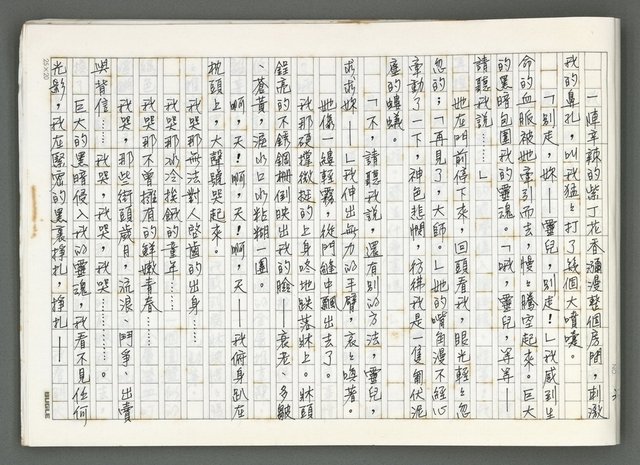 一陣辛辣的紫丁花香瀰漫整個房間，刺激
我的鼻孔，叫我猛猛打了幾個大噴嚏。
「別走，妳——靈兒，別走！」我感到生
命的血脈被她牽引而去，慢慢騰空起來。巨大
的黑暗包圍我的靈魂。「哦，靈兒，等等——
請聽我說……」
她在門前停下來，回頭看我，眼光輕輕忽
忽的：「再見了，大師。」她的嘴角漫不經心
牽動了一下，神色悲憫，彷彿我是一隻匍伏泥
塵的螻蟻。
「不，請聽我說，還有別的方法，靈兒，
求求妳——」我伸出無力的手臂，哀哀喚著。
她像一縷輕霧，從門縫中飄出去了。
我那硬撐微挺的上身咚地跌落牀上。牀頭
鋥亮的不銹鋼柵倒映出我的臉——衰老、多皺
、蒼黃，淚水口水粘糊一團。
啊，天！啊，天！啊，天——我俯身趴在
枕頭上，大聲號哭起來。
我哭那無法對人啓齒的出身……
我哭那冰冷挨餓的童年……
我哭那不曾擁有的鮮嫩青春……
我哭，那些街頭歲月，流浪、鬥爭、出賣
與背信……我哭，我哭，我哭……
巨大的黑暗侵入我的靈魂，我看不見任何
光影，我在緊密的黑裹掙扎，掙扎——
25×20